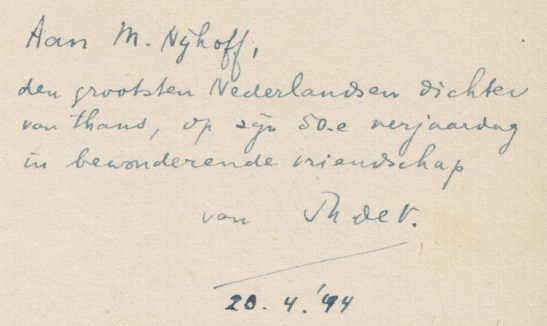 Aan M. Nijhoff,
den grootsten Nederlandsen dichter
van thans, op zijn 50.e verjaardag
in bewonderende vriendschap
van Th de V.
20. 4. '44